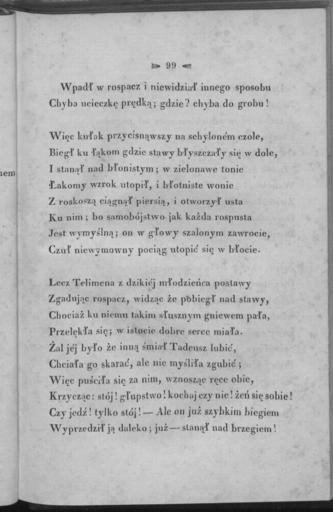 99
Wpadł w rospacz i niewidział innego sposobu
Chyba ucieczkę prędką; gdzie? chyba do grobu!
Więc kułak przycisnąwszy na schyloném czole,
Biegł ku łąkom gdzie stawy błyszczały się w dole,
I stanął nad błonistym; w zielonawe tonie
Łakomy wzrok utopił, i błotniste wonie
Z roskoszą ciągnął piersią, i otworzył usta
Ku nim; bo samobójstwo jak każda rospusta
Jest wymyślną; on w głowy szalonym zawrocie,
Czuł niewymowny pociąg utopić się w błocie.
Lecz Telimena z dzikiéj młodzieńca postawy
Zgadując rospacz, widząc że pobiegł nad stawy,
Chociaż ku niemu takim słusznym gniewem pała,
Przelękła się; w istocie dobre serce miała.
Żal jéj było że inną śmiał Tadeusz lubić,
Chciała go skarać, ale nie myśliła zgubić;
Więc puściła się za nim, wznosząc ręce obie,
Krzycząc: stój! głupstwo! kochaj czy nie! żeń się sobie!
Czy jedź! tylko stój! — Ale on już szybkim biegiem
Wyprzedził ją daleko; już — stanął nad brzegiem!